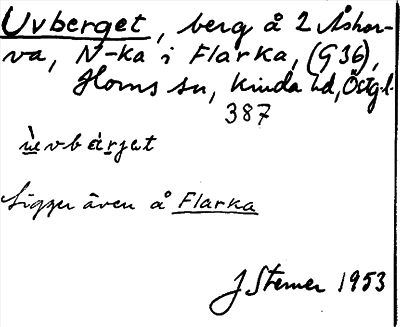 Uvberget, berg å 2 Åskor-
va, N-ka i Flarka, (G 36),
Horns sn, Kinda hd, Östg.l.
387
ùvbärjet
Ligger även å Flarka
J Sterner 1953